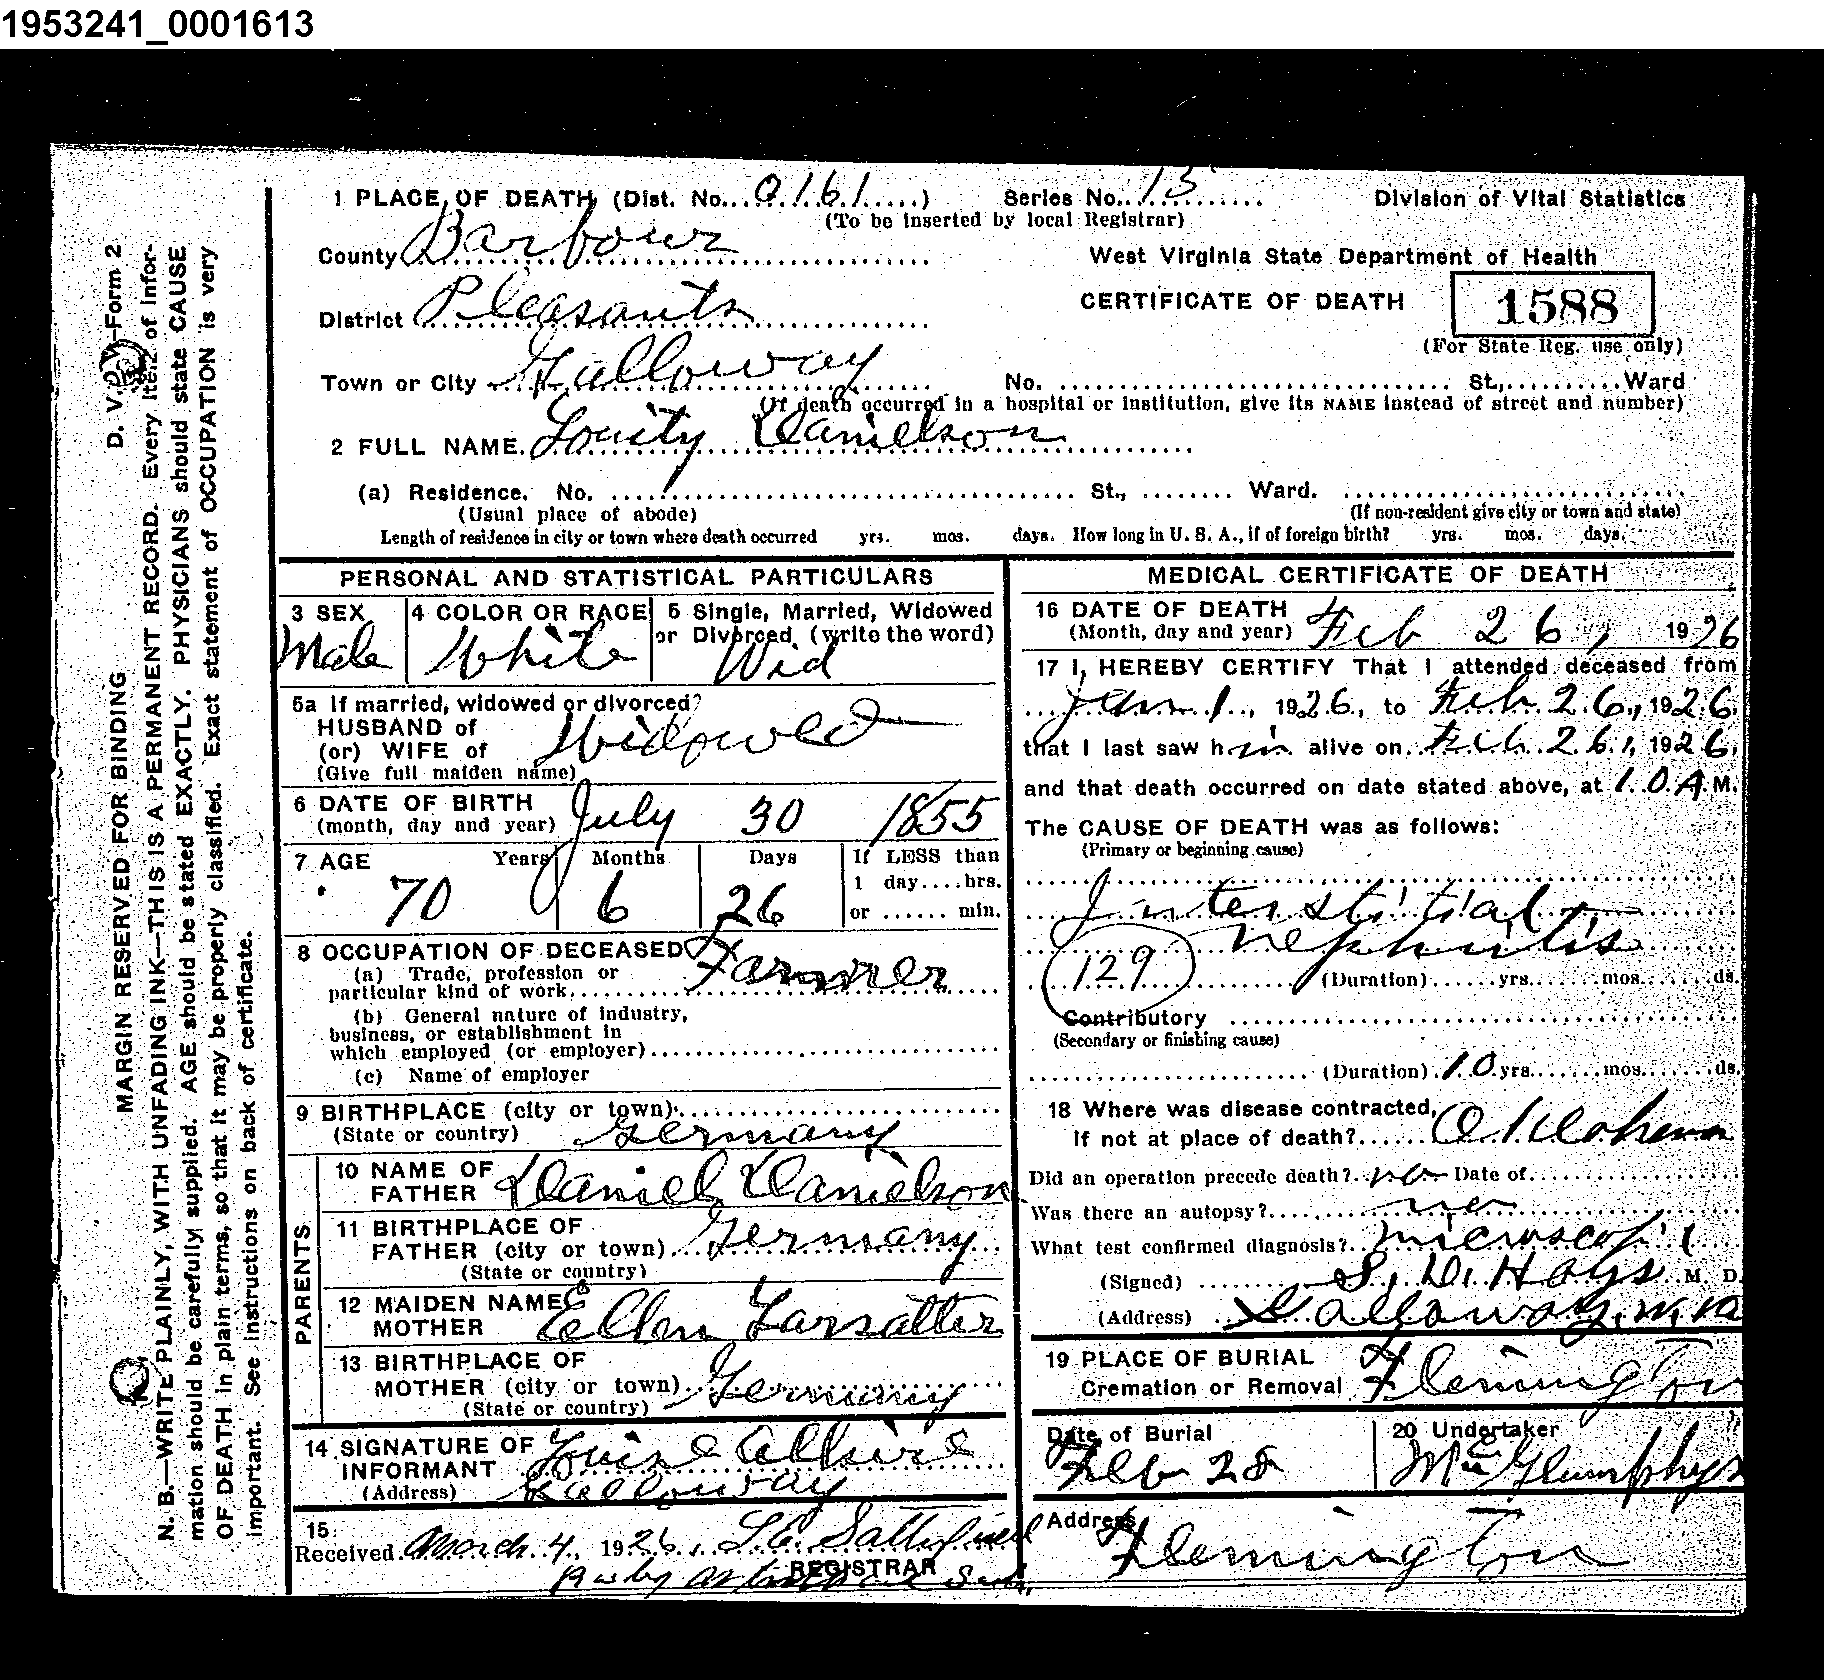 1953241_0001613
1 PLACE OF DEATH (Dist. No. 0161) Series No. 13 Division of Vital Statistics
(To be inserted by local Registrar)
County Barbour
West Virginia State Department of Health
CERTIFICATE OF DEATH 1588
(For State Reg. use only)
District Pleasants
Town or City Galloway No. St., Ward
(If death occurred in a hospital or institution, give its NAME instead of street and number)
2 FULL NAME. Danielson
(a) Residence. No. St., Ward.
(Usual place of abode) (If non-resident give city or town and state)
Length of residence in city or town where death occurred yrs. mos. days. How long in U. S. A., if of foreign birth? yrs. mos. days.
PERSONAL AND STATISTICAL PARTICULARS
3 SEX 4 COLOR OR RACE 5 Single, Married, Widowed
or Divorced, (write the word)
Male White Wid
5a If married, widowed or divorced?
HUSBAND of
(or) WIFE of Widowed
(Give full maiden name)
6 DATE OF BIRTH
(month, day and year) July 30 1855
7 AGE Years Months Days If LESS than
1 day....hrs.
or ...... min.
70 6 26
8 OCCUPATION OF DECEASED
(a) Trade, profession or
particular kind of work Farmer
(b) General nature of industry,
business, or establishment in
which employed (or employer)
(c) Name of employer
9 BIRTHPLACE (city or town)
(State or country) Germany
PARENTS
10 NAME OF
FATHER Daniel Danielson
11 BIRTHPLACE OF
FATHER (city or town) Germany
(State or country)
12 MAIDEN NAME
MOTHER Ellen
13 BIRTHPLACE OF
MOTHER (city or town) Germany
(State or country)
14 SIGNATURE OF
INFORMANT Louise
(Address) Galloway
15
Received March 4, 1926,
REGISTRAR
MEDICAL CERTIFICATE OF DEATH
16 DATE OF DEATH
(Month, day and year) Feb 26, 1926
17 I, HEREBY CERTIFY That I attended deceased from
Jan 1, 1926, to Feb 26, 1926,
that I last saw him alive on Feb 26, 1926,
and that death occurred on date stated above, at 10 A M.
The CAUSE OF DEATH was as follows:
(Primary or beginning cause)
Interstitial
nephritis
129
(Duration) yrs. mos. ds.
Contributory
(Secondary or finishing cause)
(Duration) 10 yrs. mos. ds.
18 Where was disease contracted,
If not at place of death? Oklahoma
Did an operation precede death? no Date of
Was there an autopsy? no
What test confirmed diagnosis? microscopi
(Signed) S. D. Hays M. D.
(Address) Galloway, W. Va
19 PLACE OF BURIAL
Cremation or Removal Flemington
Date of Burial 20 Undertaker
Feb 28
Address
Flemington
D. V. S.—Form 2
MARGIN RESERVED FOR BINDING
N. B.—WRITE PLAINLY, WITH UNFADING INK—THIS IS A PERMANENT RECORD. Every item of infor-
mation should be carefully supplied. AGE should be stated EXACTLY. PHYSICIANS should state CAUSE
OF DEATH in plain terms, so that it may be properly classified. Exact statement of OCCUPATION is very
important. See instructions on back of certificate.